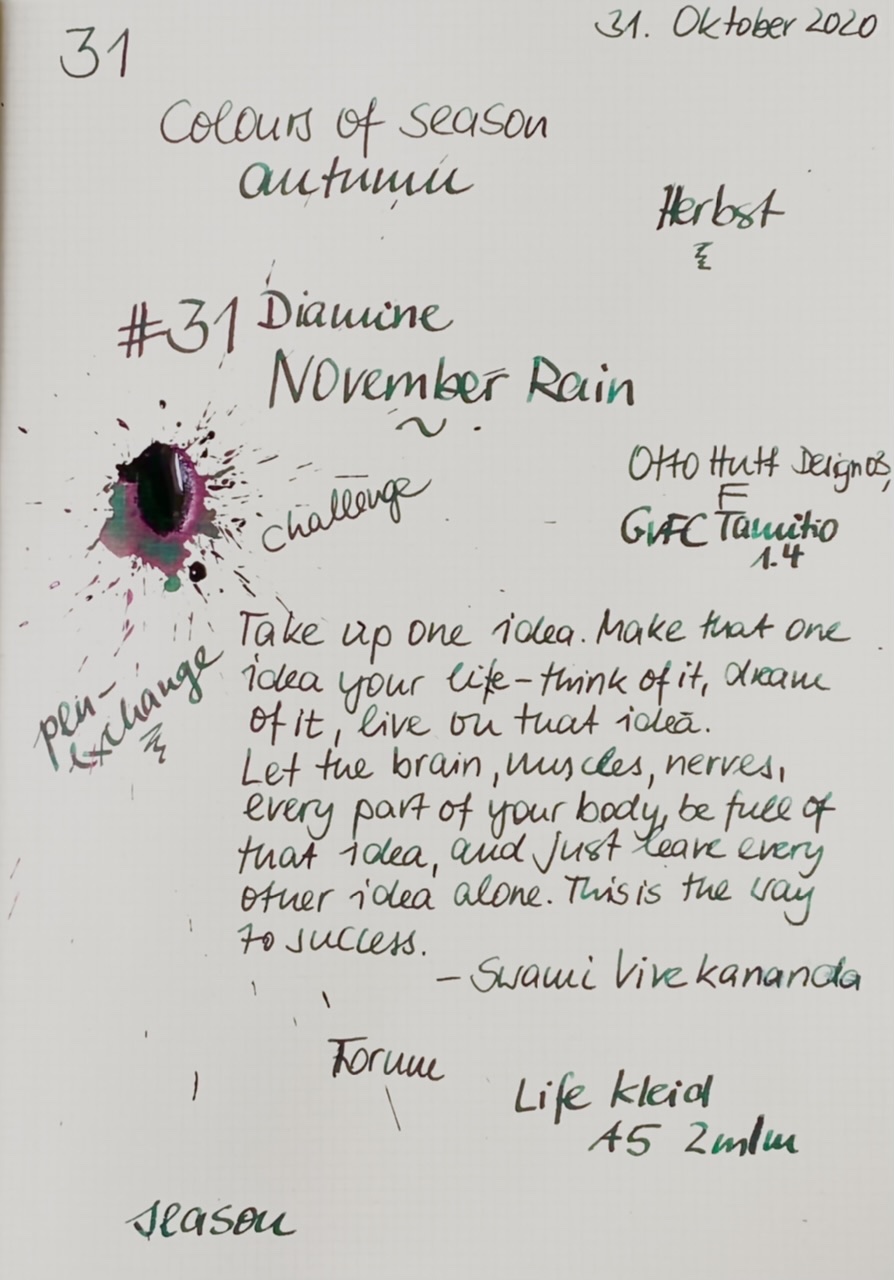 31. Oktober 2020
31
Colours of season
autumn
Herbst
#31 Diamine
November Rain
Otto Hutt Design 03,
F
challenge
GvFC Tamitio
1.4
Take up one idea. Make that one
idea your life - think of it, dream
of it, live on that idea.
pen-
exchange
Let the brain, muscles, nerves,
every part of your body, be full of
that idea, and just leave every
other idea alone. This is the way
to success.
- Swami Vivekananda
Forum
Life Kleid
A5 2mm
season